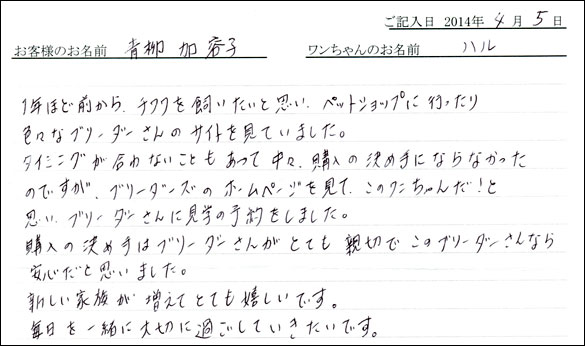 ご記入日 2014年 4 月 5 日
お客様のお名前 青柳 加容子 ワンちゃんのお名前 ハル
1年ほど前から、チワワを飼いたいと思い、ペットショップに行ったり
色々なブリーダーさんのサイトを見ていました。
タイミングが合わないこともあって中々、購入の決め手にならなかった
のですが、ブリーダーズのホームページを見て、このワンちゃんだ!と
思い、ブリーダーさんに見学の予約をしました。
購入の決め手はブリーダーさんがとても 親切で このブリーダーさんなら
安心だと思いました。
新しい家族が 増えてとても嬉しいです。
毎日を一緒に大切に過ごしていきたいです。